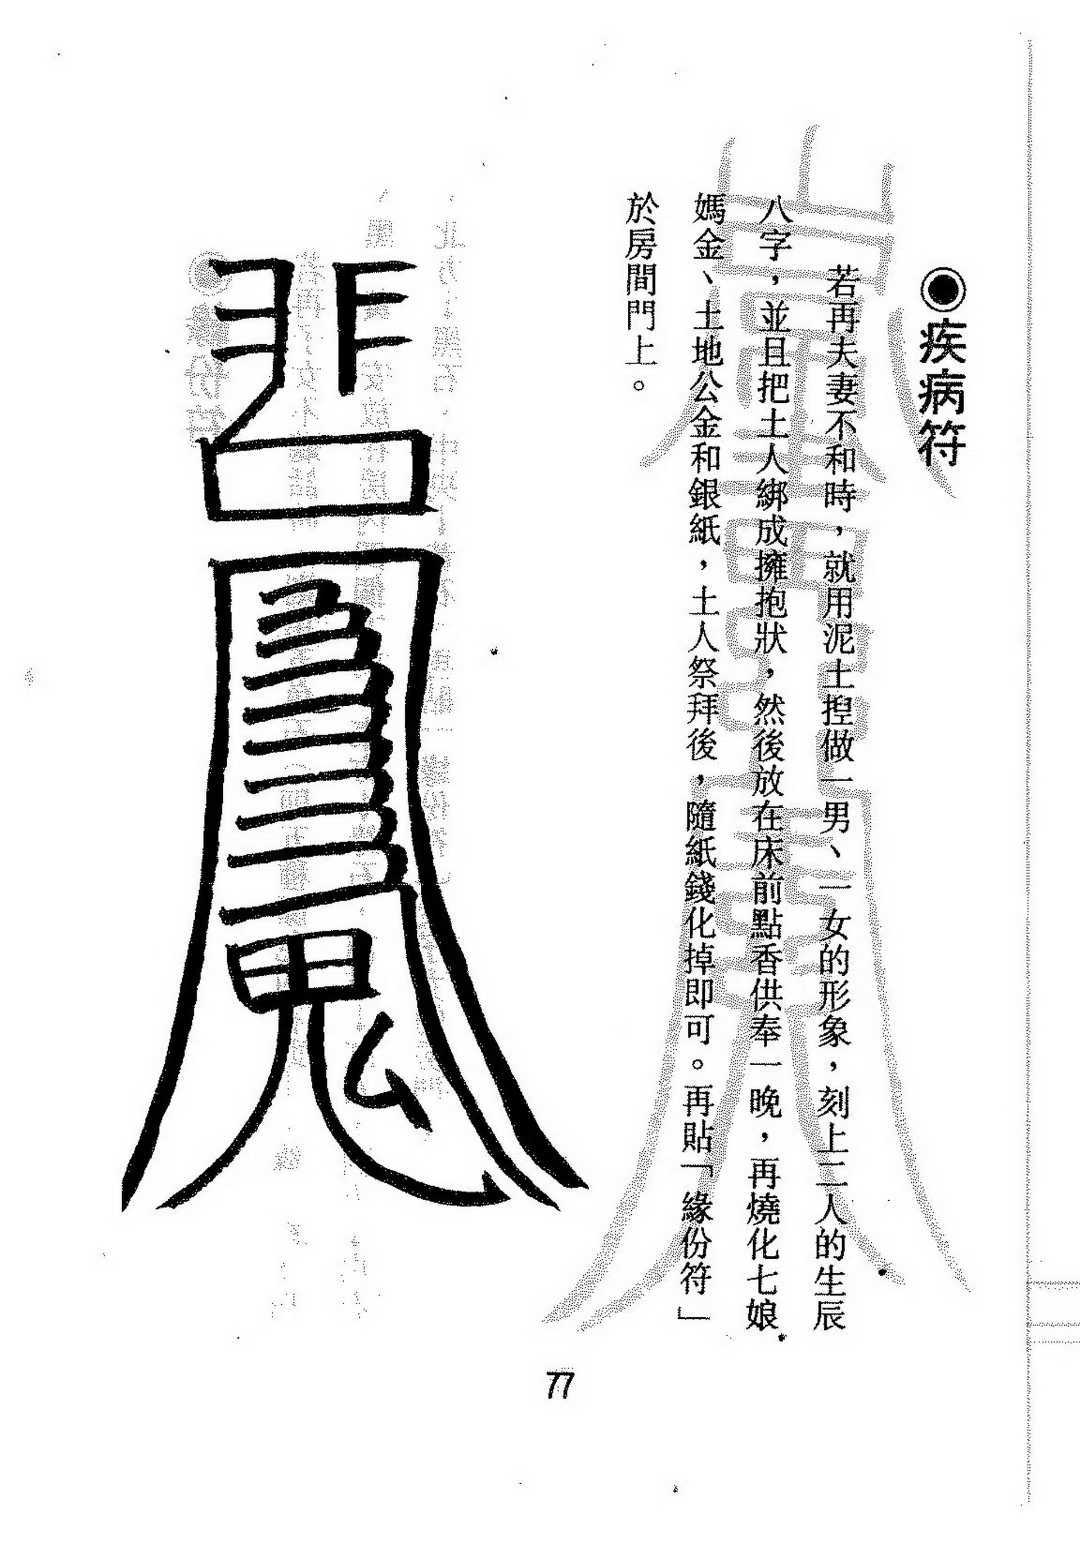 ◉疾病符
若再夫妻不和時，就用泥土捏做一男、一女的形象，刻上二人的生辰
八字，並且把土人綁成擁抱狀，然後放在床前點香供奉一晚，再燒化七娘
媽金、土地公金和銀紙，土人祭拜後，隨紙錢化掉即可。再貼「緣份符」
於房間門上。
77